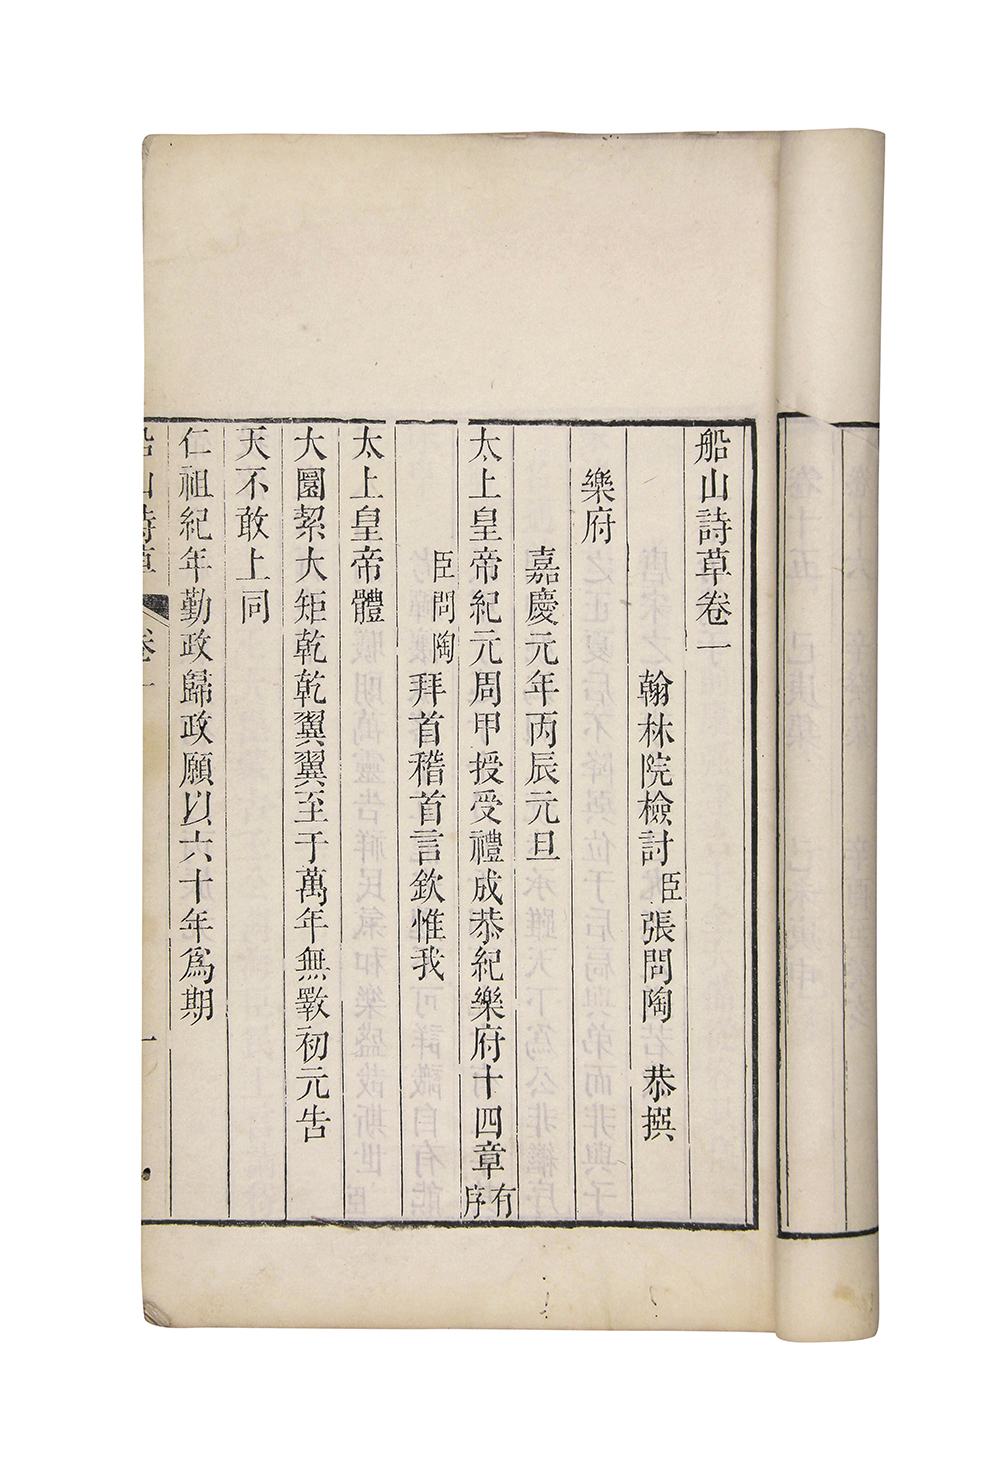 船山詩草卷一
翰林院檢討臣張問陶恭撰
樂府
嘉慶元年丙辰元旦
太上皇帝紀元周甲授受禮成恭紀樂府十四章有序
臣問陶拜首稽首言欽惟我
太上皇帝體
大圜絜大矩乾乾翼翼至于萬年無斁初元告
天不敢上同
仁祖紀年勤政歸政願以六十年爲期
船山詩草 卷一 一